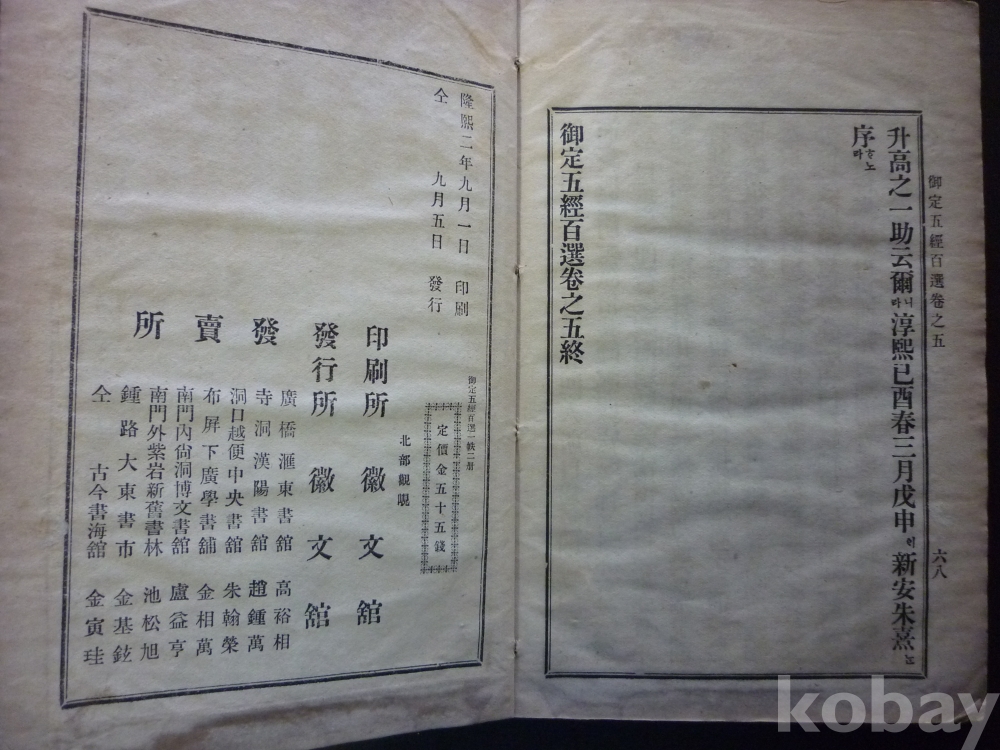 御定五經百選卷之五 六八
升高之一助云爾니라淳熙己酉春三月戊申에新安朱熹는
序하노라
御定五經百選卷之五終
隆熙二年九月一日 印刷
仝 九月五日 發行
御定五經百選一帙二册
定價金五十五錢
北部觀峴
印刷所 徽文舘
發行所 徽文舘
發賣所
廣橋滙東書舘 高裕相
寺洞漢陽書舘 趙鍾萬
洞口越便中央書舘 朱翰榮
布屛下廣學書舖 金相萬
南門內尙洞博文書舘 盧益亨
南門外紫岩新舊書林 池松旭
鍾路大東書市 金基鉉
仝 古今書海舘 金寅珪
kobay